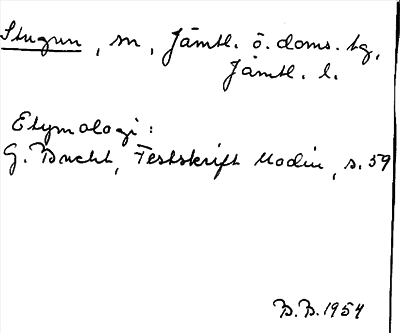 Stugun, sn, Jämtl. ö. doms. tg,
Jämtl. l.
Etymologi:
G. Bucht, Festskrift Modin, s. 59
B.B. 1954